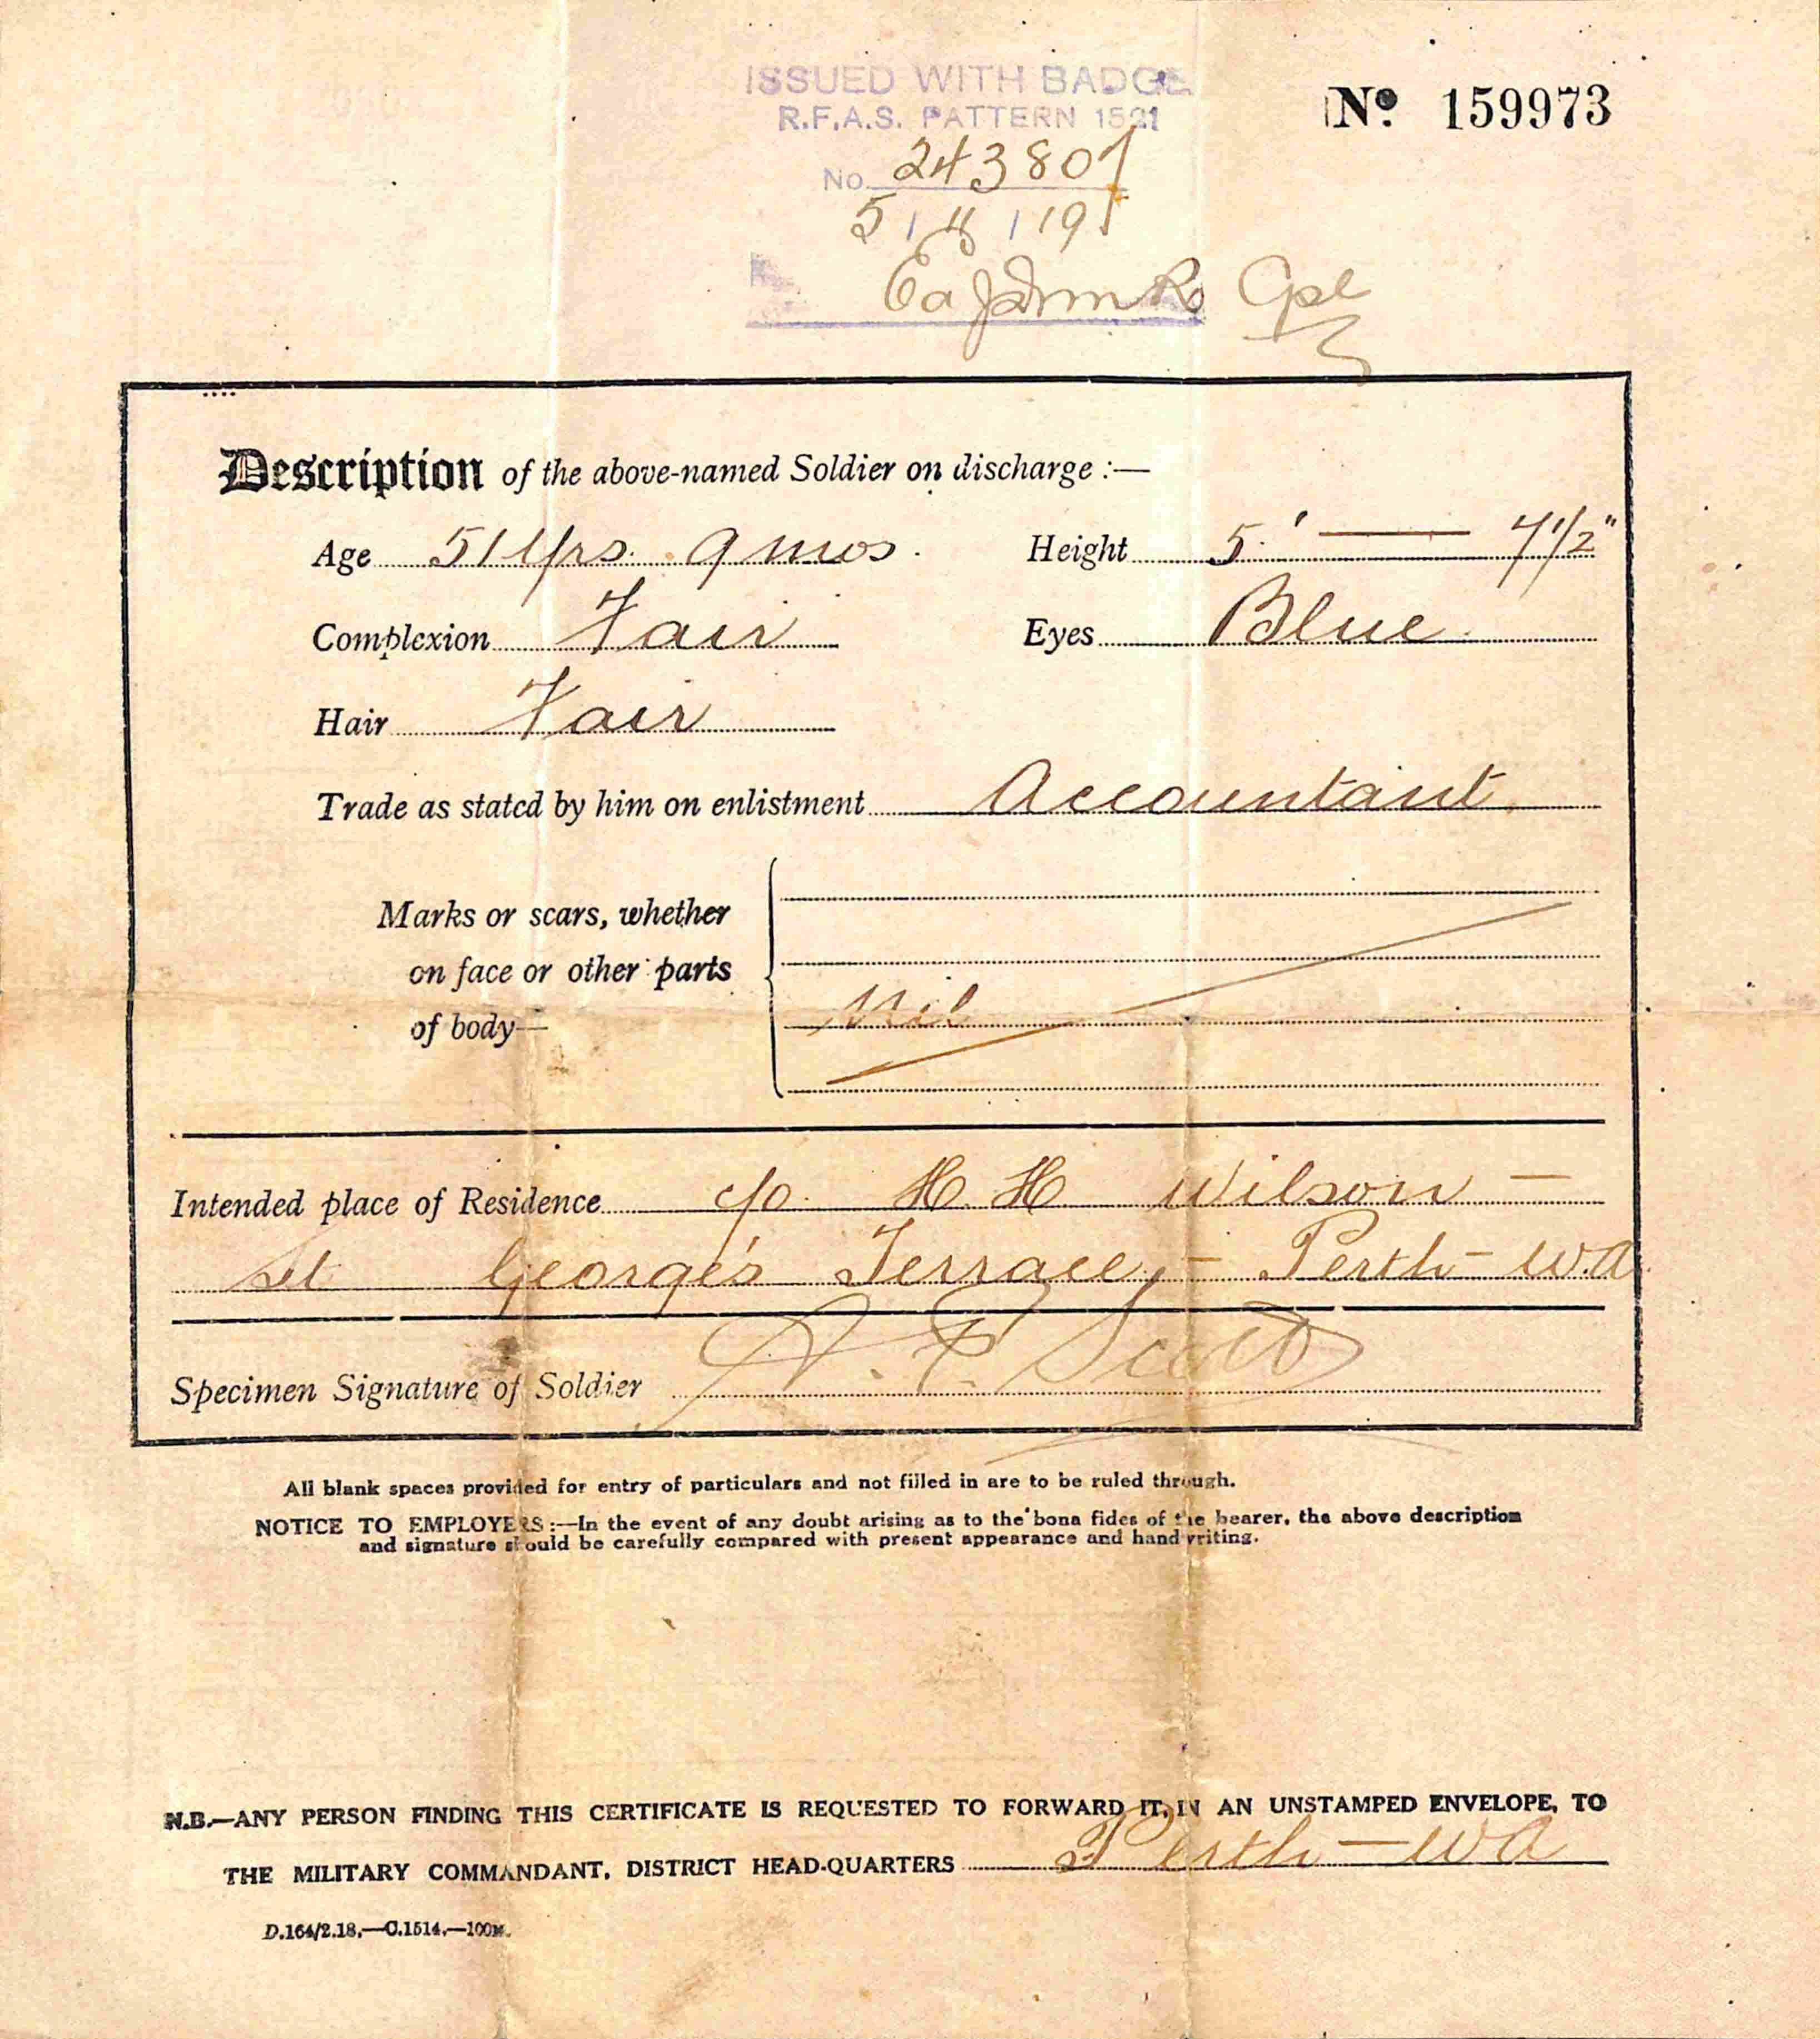 ISSUED WITH BADGE
Nº 159973
R.F.A.S. PATTERN 1521
No. 243801
5 / / 19
Cpl
Description of the above-named Soldier on discharge :—
Age 51 Yrs. 9 mos. Height 5' — 7 1/2"
Complexion Fair Eyes Blue
Hair Fair
Trade as stated by him on enlistment Accountant
Marks or scars, whether
on face or other parts
of body— Nil
Intended place of Residence c/o. H. H. Wilson —
St George's Terrace, — Perth — W.A.
Specimen Signature of Soldier Scott
All blank spaces provided for entry of particulars and not filled in are to be ruled through.
NOTICE TO EMPLOYERS :—In the event of any doubt arising as to the bona fides of the bearer, the above description
and signature should be carefully compared with present appearance and handwriting.
N.B.—ANY PERSON FINDING THIS CERTIFICATE IS REQUESTED TO FORWARD IT, IN AN UNSTAMPED ENVELOPE, TO
THE MILITARY COMMANDANT, DISTRICT HEAD-QUARTERS Perth — WA
D.164/2.18.—C.1514.—100M.